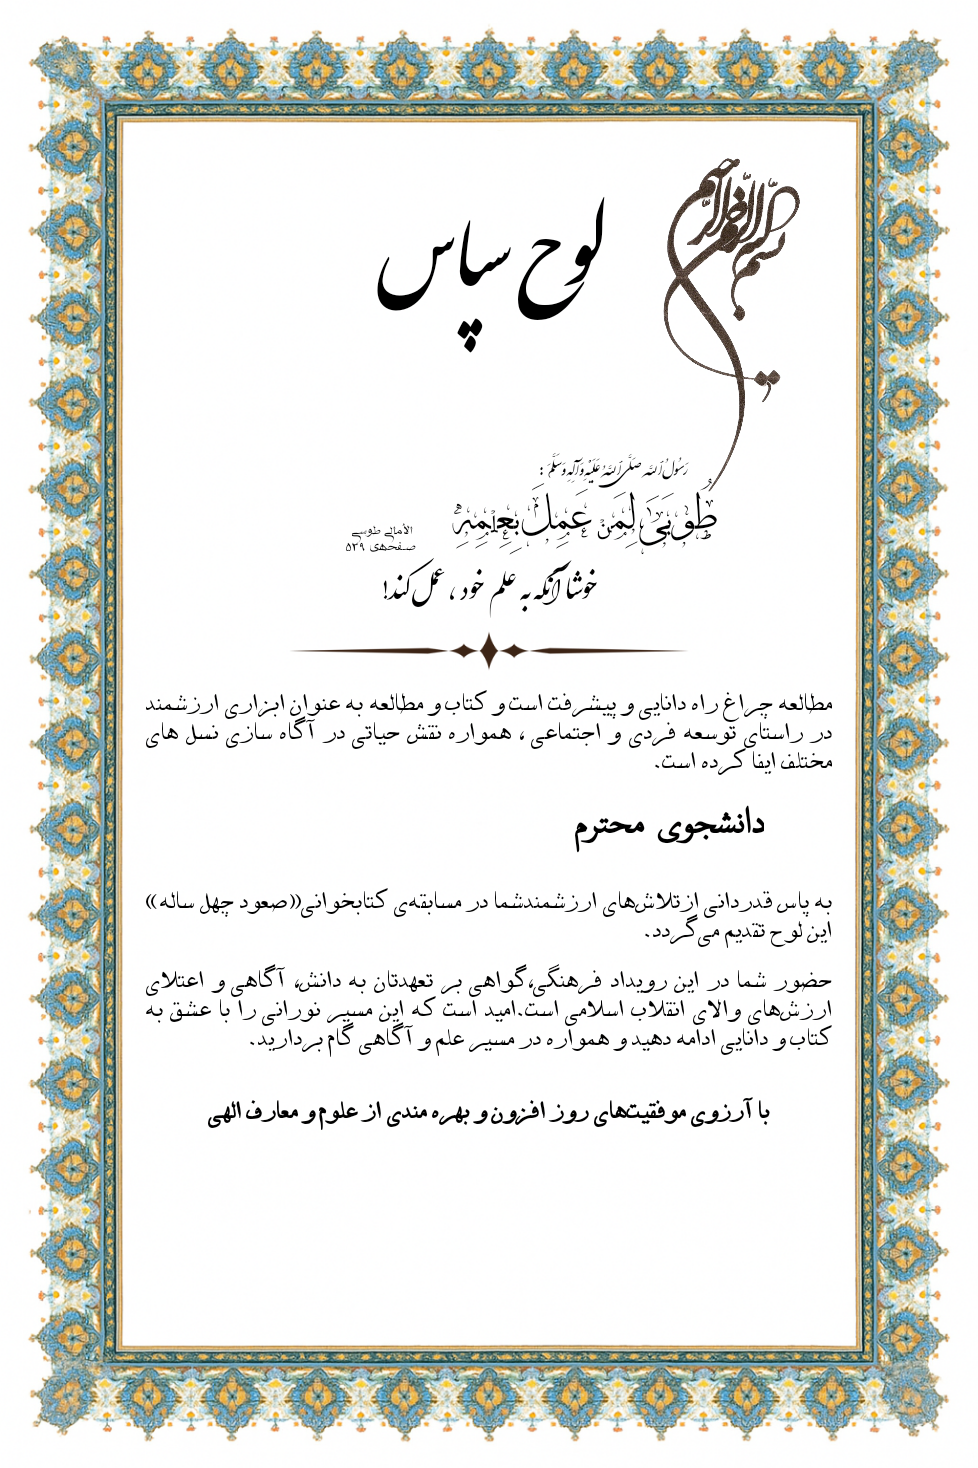 بسم الله الرحمن الرحیم
لوح سپاس
رَسُولُ اَللَّهِ صَلَّى اَللَّهُ عَلَيْهِ وَآلِهِ وَسَلَّمَ :
طُوبَىٰ لِمَنْ عَمِلَ بِعِلْمِهِ
الأمالی طوسی
صفحه‌ی ۵۳۹
خوشا آنکه به علم خود ، عمل کند!
مطالعه چراغ راه دانایی و پیشرفت است و کتاب و مطالعه به عنوان ابزاری ارزشمند
در راستای توسعه فردی و اجتماعی ، همواره نقش حیاتی در آگاه سازی نسل های
مختلف ایفا کرده است.
دانشجوی محترم
به پاس قدردانی از تلاش‌های ارزشمندشما در مسابقه‌ی کتابخوانی((صعود چهل ساله))
این لوح تقدیم می‌گردد.
حضور شما در این رویداد فرهنگی،گواهی بر تعهدتان به دانش، آگاهی و اعتلای
ارزش‌های والای انقلاب اسلامی است.امید است که این مسیر نورانی را با عشق به
کتاب و دانایی ادامه دهید و همواره در مسیر علم و آگاهی گام بردارید.
با آرزوی موفقیت‌های روز افزون و بهره مندی از علوم و معارف الهی